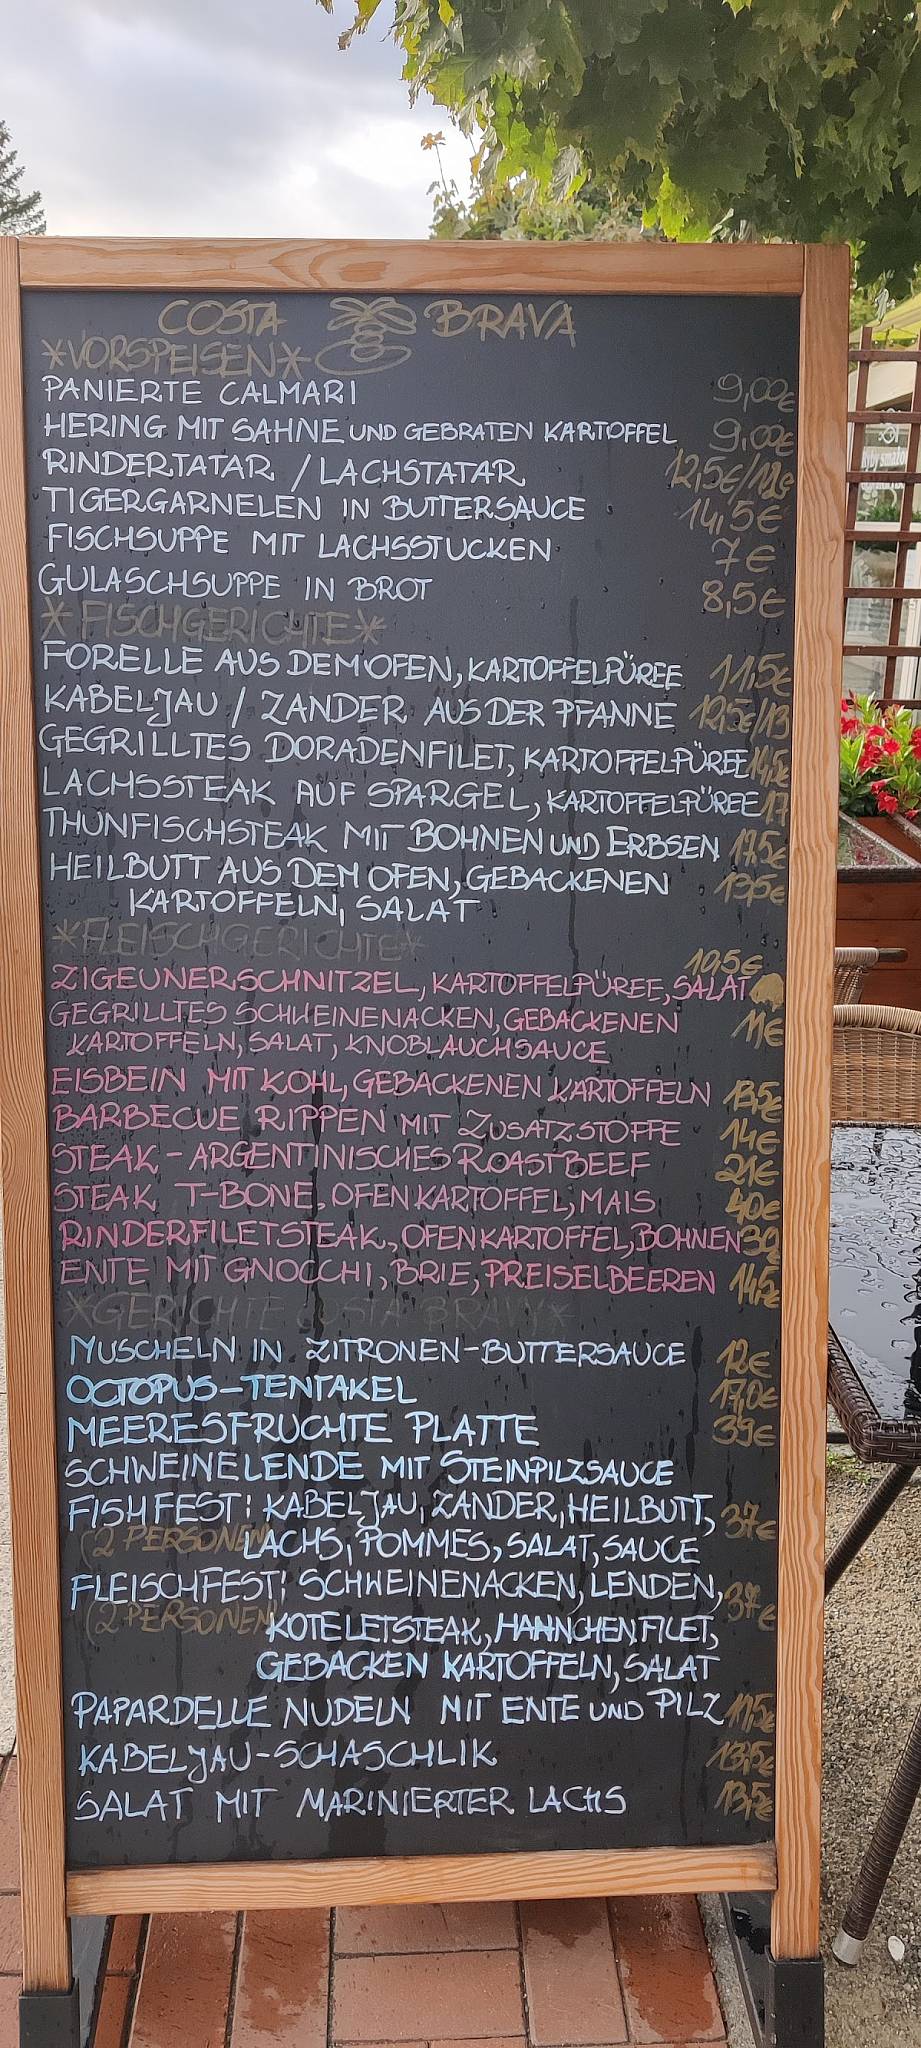 COSTA BRAVA
*VORSPEISEN*
PANIERTE CALMARI 9,00€
HERING MIT SAHNE UND GEBRATEN KARTOFFEL 9,00€
RINDERTATAR / LACHSTATAR 12,5€/12€
TIGERGARNELEN IN BUTTERSAUCE 14,5€
FISCHSUPPE MIT LACHSSTUCKEN 7€
GULASCHSUPPE IN BROT 8,5€
*FISCHGERICHTE*
FORELLE AUS DEM OFEN, KARTOFFELPÜREE 11,5€
KABELJAU / ZANDER AUS DER PFANNE 12,5€/13
GEGRILLTES DORADENFILET, KARTOFFELPÜREE 14,5€
LACHSSTEAK AUF SPARGEL, KARTOFFELPÜREE 17
THUNFISCHSTEAK MIT BOHNEN UND ERBSEN 17,5€
HEILBUTT AUS DEM OFEN, GEBACKENEN 13,5€
KARTOFFELN, SALAT
*FLEISCHGERICHTE*
10,5€
ZIGEUNERSCHNITZEL, KARTOFFELPÜREE, SALAT
GEGRILLTES SCHWEINENACKEN, GEBACKENEN 11€
KARTOFFELN, SALAT, KNOBLAUCHSAUCE
EISBEIN MIT KOHL, GEBACKENEN KARTOFFELN 13,5€
BARBECUE RIPPEN MIT ZUSATZSTOFFE 14€
STEAK - ARGENTINISCHES ROASTBEEF 21€
STEAK T-BONE, OFENKARTOFFEL, MAIS 40€
RINDERFILETSTEAK, OFENKARTOFFEL, BOHNEN 30€
ENTE MIT GNOCCHI, BRIE, PREISELBEEREN 14,5€
*GERICHTE COSTA BRAVA*
MUSCHELN IN ZITRONEN-BUTTERSAUCE 12€
OCTOPUS-TENTAKEL 17,0€
MEERESFRUCHTE PLATTE 39€
SCHWEINELENDE MIT STEINPILZSAUCE
FISHFEST: KABELJAU, ZANDER, HEILBUTT, 37€
(2 PERSONEN) LACHS, POMMES, SALAT, SAUCE
FLEISCHFEST: SCHWEINENACKEN, LENDEN, 37€
(2 PERSONEN) KOTELETSTEAK, HAHNCHENFILET,
GEBACKEN KARTOFFELN, SALAT
PAPARDELLE NUDELN MIT ENTE UND PILZ 11,5€
KABELJAU-SCHASCHLIK 13,5€
SALAT MIT MARINIERTER LACHS 13,5€